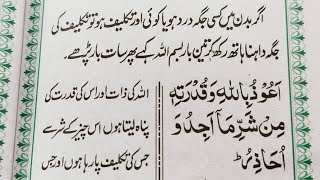 اگر بدن میں کسی جگہ درد ہو یا کوئی اور تکلیف ہو تو تکلیف کی
جگہ داہنا ہاتھ رکھ کر تین بار بسم اللہ کہے پھر سات بار پڑھے۔
اَعُوْذُ بِاللّٰهِ وَقُدْرَتِهٖ
مِنْ شَرِّ مَآ اَجِدُ وَ
اُحَاذِرُ ط
اللہ کی ذات اور اس کی قدرت کی
پناہ لیتا ہوں اس چیز کے شر سے
جس کی تکلیف پا رہا ہوں اور جس